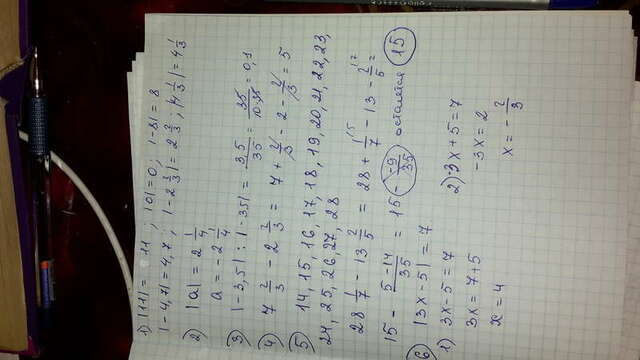 1) |11| = 11 ; |0| = 0 ; |-8| = 8
|-4,7| = 4,7 ; |-2 2/3| = 2 2/3 ; |4 1/3| = 4 1/3
2) |a| = 2 1/4
a = -2 1/4
3) |-3,5| : |-35| = 3,5/35 = 35/10·35 = 0,1
4) 7 2/3 - 2 2/3 = 7 + 2/3 - 2 - 2/3 = 5
5) 14, 15, 16, 17, 18, 19, 20, 21, 22, 23,
24, 25, 26, 27, 28
28 1/7 - 13 2/5 = 28 + 1/7 - 13 - 2/5 =
15 - 5-14/35 = 15 - -9/35 останется 15
6) |3x - 5| = 7
1) 3x - 5 = 7
3x = 7 + 5
x = 4
2) -3x + 5 = 7
-3x = 2
x = - 2/3